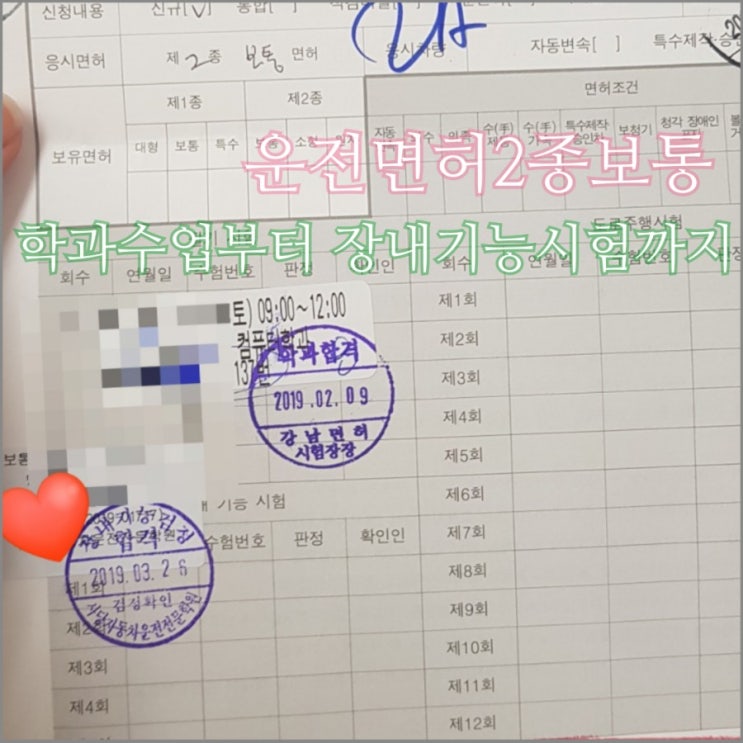 신청내용 신규[V] 통합[ ]
응시면허 제 2 종 보통 면허 응시차량 자동변속[ ] 특수제작·승인
제1종 제2종 면허조건
보유면허 대형 보통 특수 보통 소형 자동 수(手) 수(手) 특수제작 승인차 보청기 청각 장애인
운전면허2종보통
학과수업부터 장내기능시험까지
도로주행시험
회수 연월일 수험번호 판정 확인인 회수 연월일 수험번호 판정
토) 09:00~12:00
컴퓨터학과
137번
학과합격
2019.02.09
강남면허
시험장장
제1회
제2회
제3회
제4회
제5회
제6회
제7회
제8회
제9회
제10회
제11회
제12회
보통
기능 시험
수험번호 판정 확인인
합격
2019.03.26
검성확인
자동차운전전문학원
제1회
제2회
제3회
제4회